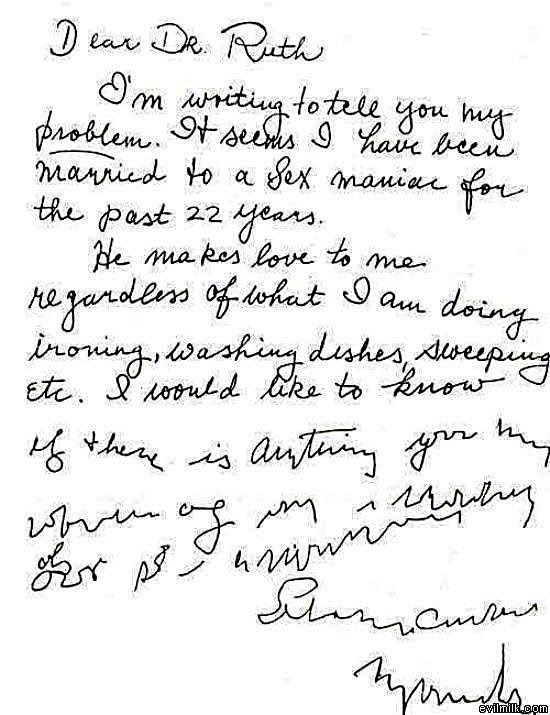 Dear Dr. Ruth
I'm writing to tell you my
problem. It seems I have been
married to a sex maniac for
the past 22 years.
He makes love to me
regardless of what I am doing
ironing, washing dishes, sweeping
etc. I would like to know
if there is anything you my
evilmilk.com